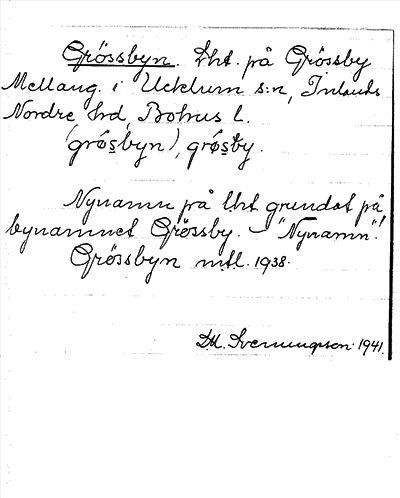 Grössbyn. Lht. på Grössby
Mellang. i Ucklum s:n, Inlands
Nordre hd, Bohus l.
(grö́sbyn), grö́sby.
Nynamn på lht grundat på
bynamnet Grössby. – "Nynamn"!
Grössbyn mtl. 1938.
Svenungsson 1941.